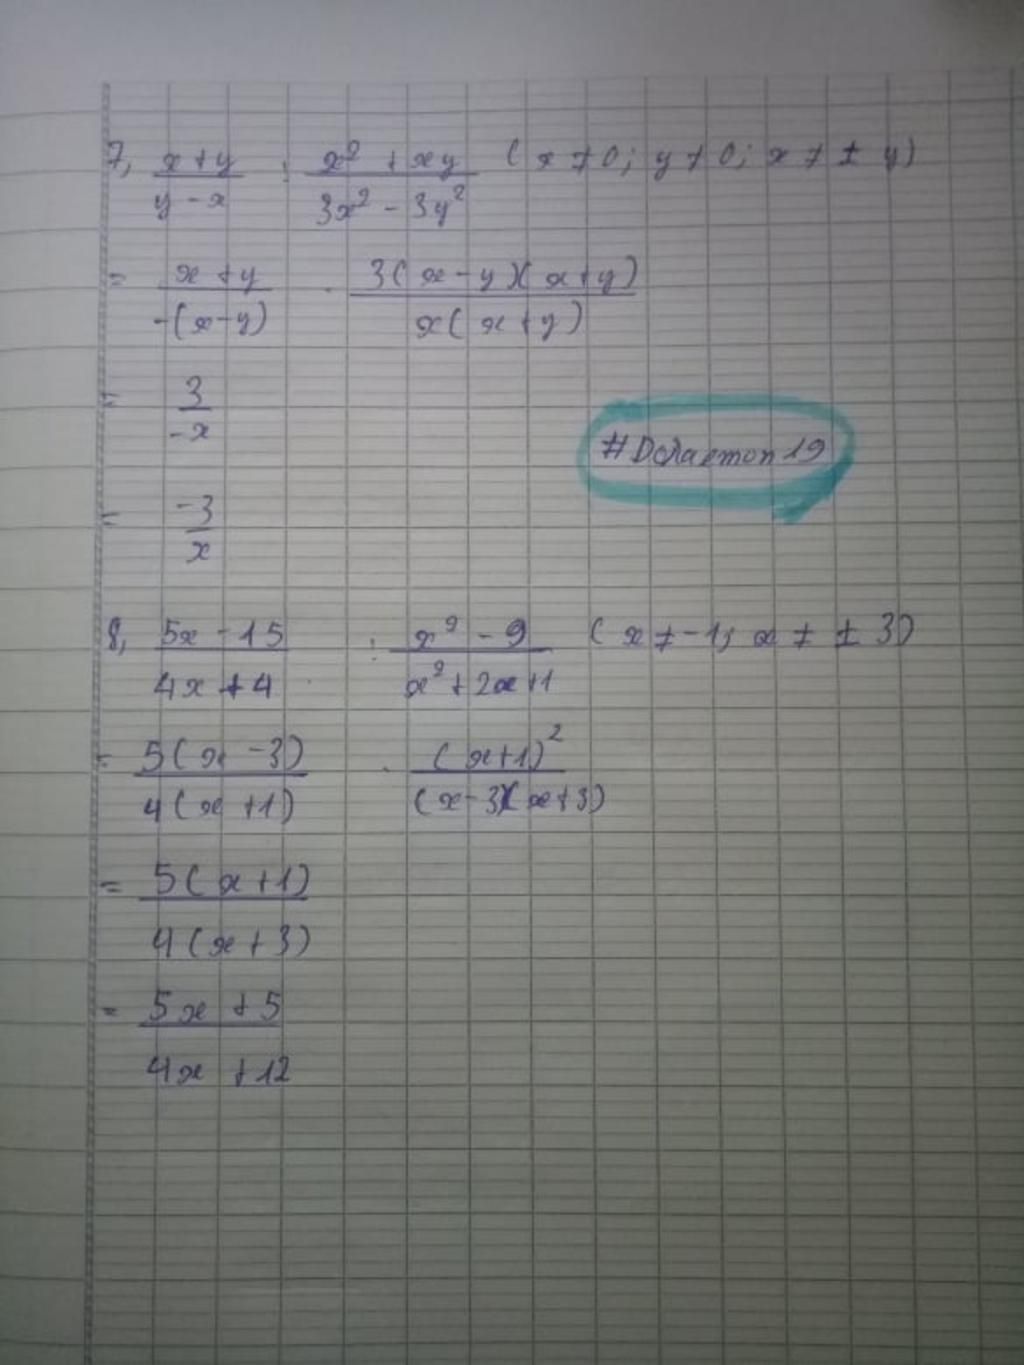 7, x+y/y-x : x²+xy/3x²-3y² (x≠0; y≠0; x≠±y)
= x+y/-(x-y) . 3(x-y)(x+y)/x(x+y)
= 3/-x
= -3/x
8, 5x-15/4x+4 : x²-9/x²+2x+1 (x≠-1; x≠±3)
= 5(x-3)/4(x+1) . (x+1)²/(x-3)(x+3)
= 5(x+1)/4(x+3)
= 5x+5/4x+12